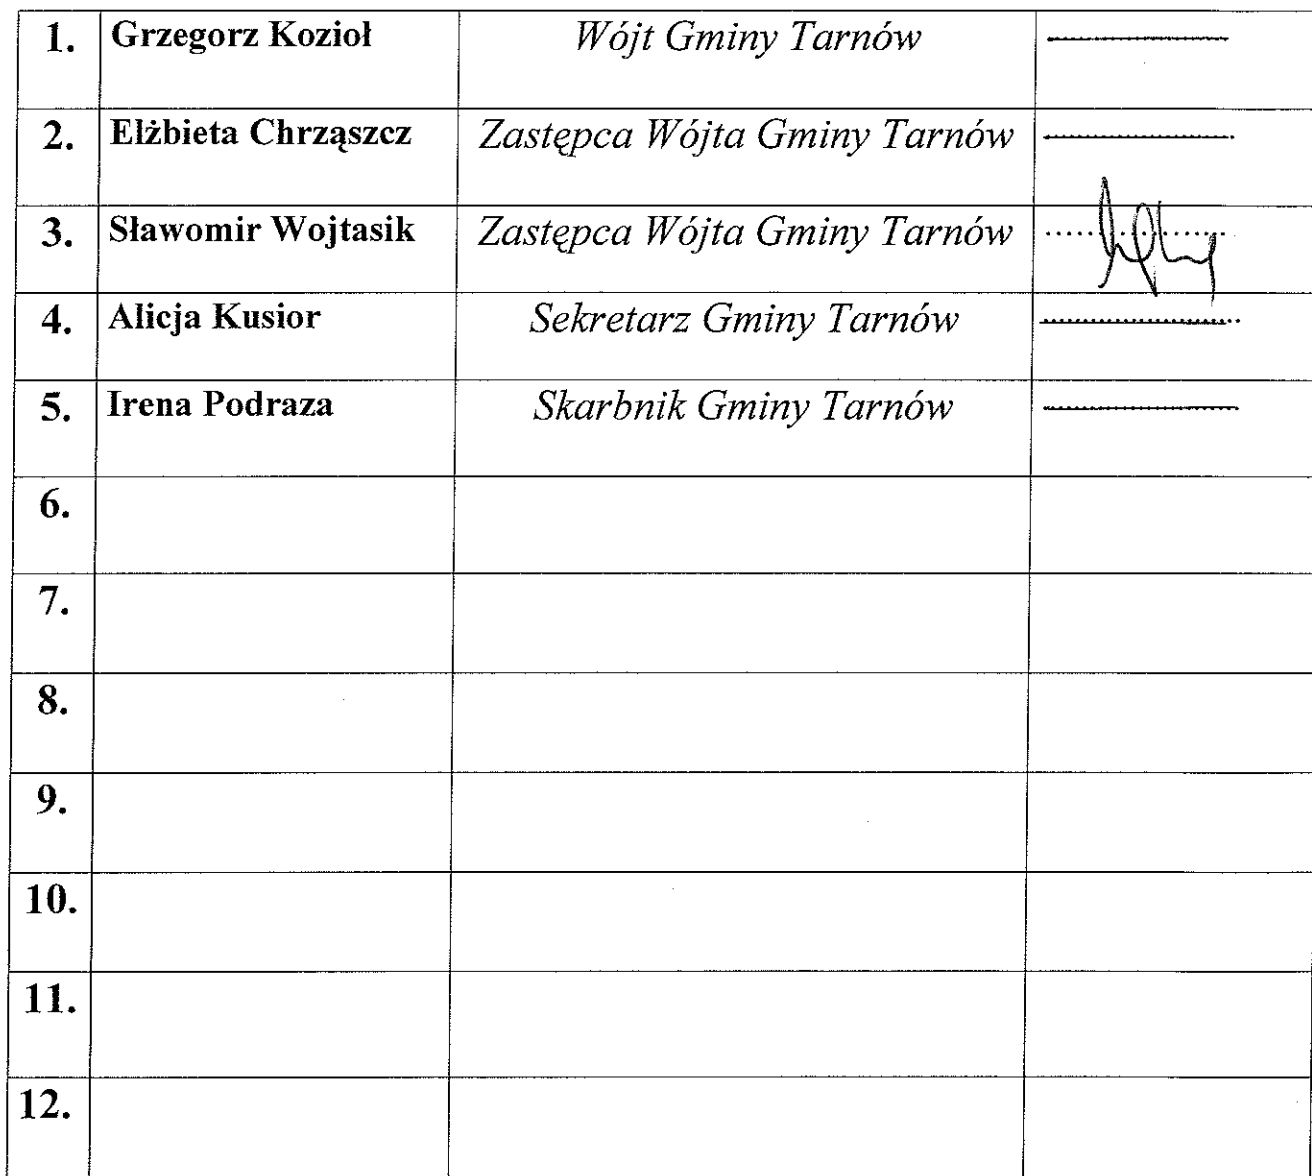 1. Grzegorz Kozioł Wójt Gminy Tarnów
2. Elżbieta Chrząszcz Zastępca Wójta Gminy Tarnów
3. Sławomir Wojtasik Zastępca Wójta Gminy Tarnów
4. Alicja Kusior Sekretarz Gminy Tarnów
5. Irena Podraza Skarbnik Gminy Tarnów
6.
7.
8.
9.
10.
11.
12.